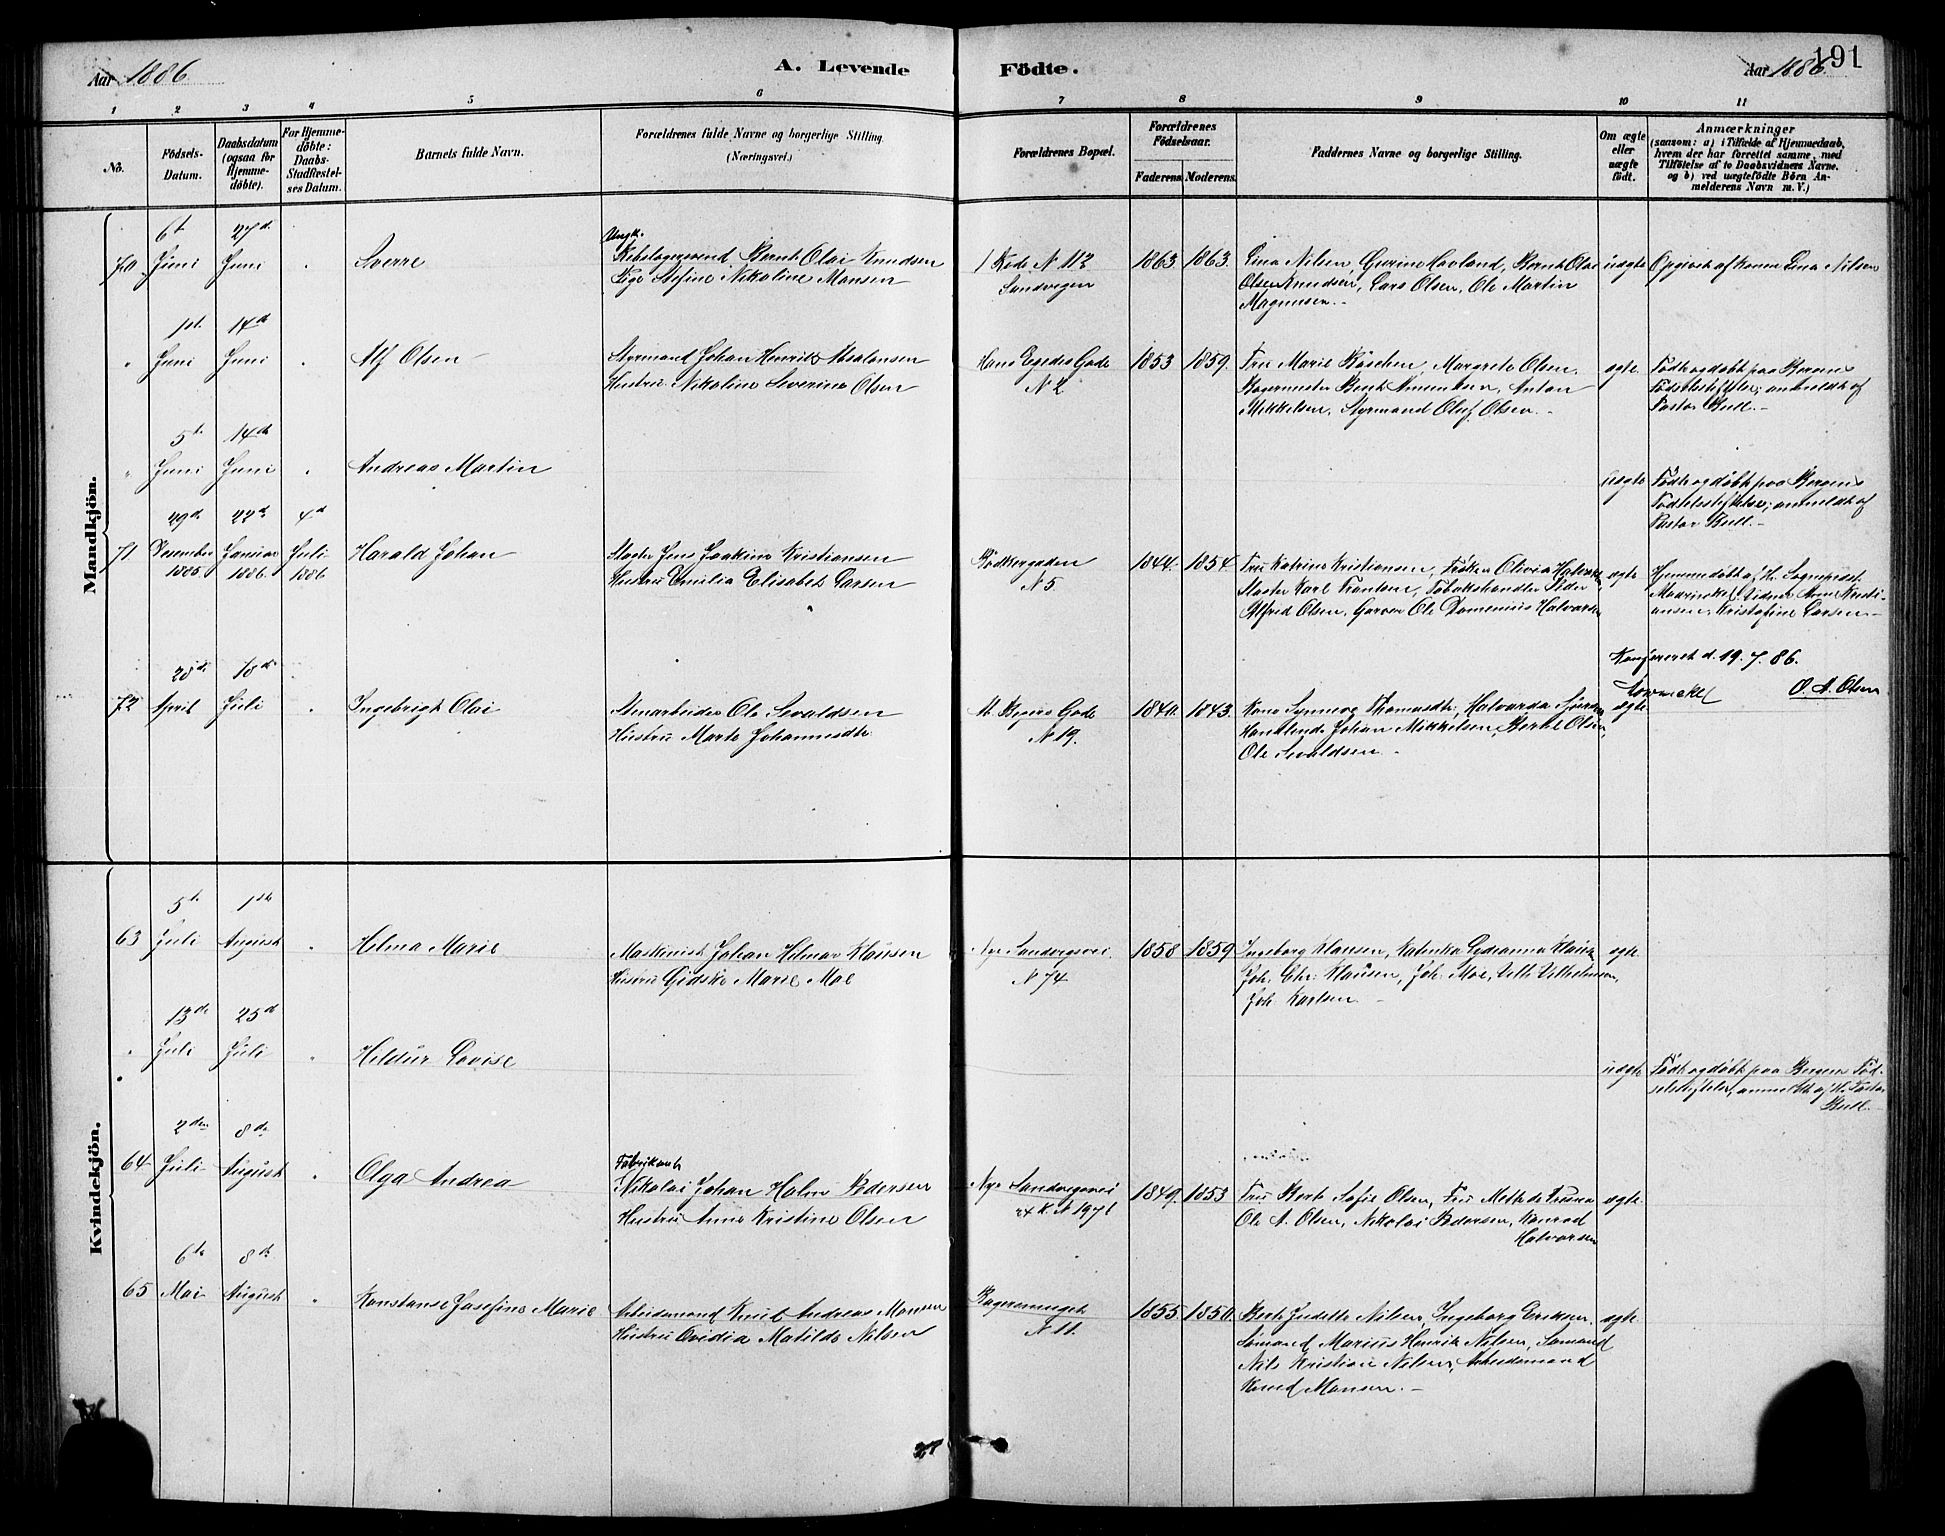 Aar 1886
A. Levende
Födte.
Aar 1886.
191
1 2 3 4 5 6 7 8 9 10 11
No.
Födsels-
Datum.
Daabsdatum
(ogsaa for
Hjemme-
döbte).
For Hjemme-
döbte:
Daabs-
Stadfæstel-
ses Datum.
Barnets fulde Navn.
Forældrenes fulde Navne og borgerlige Stilling.
(Næringsvei.)
Forældrenes Bopæl.
Forældrenes
Födselsaar.
Faderens. Moderens.
Faddernes Navne og borgerlige Stilling.
Om ægte
eller
uægte
født.
Anmærkninger
(saasom: a) i Tilfælde af Hjemmedaab,
hvem der har forrettet samme, med
Tilføielse af to Daabsvidners Navne.
og b) ved uægtefødte Börn An-
melderens Navn m. V.)
Mandkjön.
6t 27d
Ungk.
70 Juni Juni Sverre
Bernt Olai Knudsen
Pige Stefine Nikoline Monsen
1 Rode N 112
Sandvigen
1863 1863.
Lina Nilsen, Gurine Lovland, Bernt Olai
Olsen Knudsen, Lars Olsen, Ole Martin
Magnusen.-
uægte
Opgivet af konen Lina Nilsen
1st 14d
" Juni Juni Alf Olsen
Styrmand Johan Henrik Absalonsen
Hustru Nikoline Severine Olsen
Hans Egedes Gade
N 2
1853 1859.
Fru Marie Böschen, Margrete Olsen,
Bagermester Berent Amundsen, Anton
Mikkelsen, Styrmand Oluf Olsen.-
ægte
Född og døbt paa Bergens
Födselsstiftelse; anmeldt af
Pastor Bull.-
5t 14d
" Juni Juni Andreas Martin
uægte
Född og døbt paa Bergens
Födselsstiftelse; anmeldt af
Pastor Bull.-
29d 22d 4d
71 Desember Januar Juli Harald Johan
1885 1886. 1886
Slagter Jens Joakim Kristiansen
Hustru Emilia Elisabet Larsen
Bödkergaden
N 5.
1844. 1854.
Fru Katrine Kristiansen, Frøken Olivia
Slagter Karl Frantsen, Tobakshandler Peder
Alfred Olsen, Garver Ole Domenicus Halvorsen
ægte
Hjemmedøbt af Hr. Sogneprest
Vidner Anne Kristi-
ansen, Kristofine Larsen-
Konfereret d. 19. 7. 86.
O. A. Olsen
28d 18d
72 April Juli Ingebrigt Olai
Ole Sevaldsen
Hustru Marte Johannesdtr
N 19.
1840. 1843.
Kone Synneve Thomasdtr, Halvarda
Johan Mikkelsen, Berthe Olsen,
Ole Sevaldsen -
ægte
Kvindekjön.
5t 1st
63 Juli August Hilma Marie
Maskinist Johan Hilmar Klausen
Hustru Gidske Marie Moe
Nye Sandvigsvei
N 74.
1858 1859
Ingeborg Klausen, Katinka Lydianna Klausen
Joh. Chr. Klausen, Joh. Moe, Vilh. Vilhelmsen,
Joh. Karlsen -
ægte
13de 25d
" Juli Juli Hildur Lovise
uægte
Född og døbt paa Bergens Föd-
selsstiftelse, anmeldt af Hr. Pastor
Bull.
2den 8de
Fabrikant
64 Juli August Olga Andrea
Nikolai Johan Holm Pedersen
Hustru Anne Kristine Olsen
Nye Sandvigsvei
24 R. N 197 b
1849. 1853
Fru Berte Sofie Olsen, Fru Mette
Ole A. Olsen, Nikolai Pedersen, Konrad
Halvorsen
ægte
6te 8de
65 Mai August Konstanse Josefine Marie
Arbeidsmand Knut Andreas Monsen
Hustru Ovidia Matilde Nilsen
N 11.
1855. 1850.
Berte Judette Nilsen, Ingeborg Eriksen,
Sømand Marius Henrik Nilsen, Sømand
Nils Kristian Nilsen, Arbeidsmand
Knud Monsen.-
ægte
27